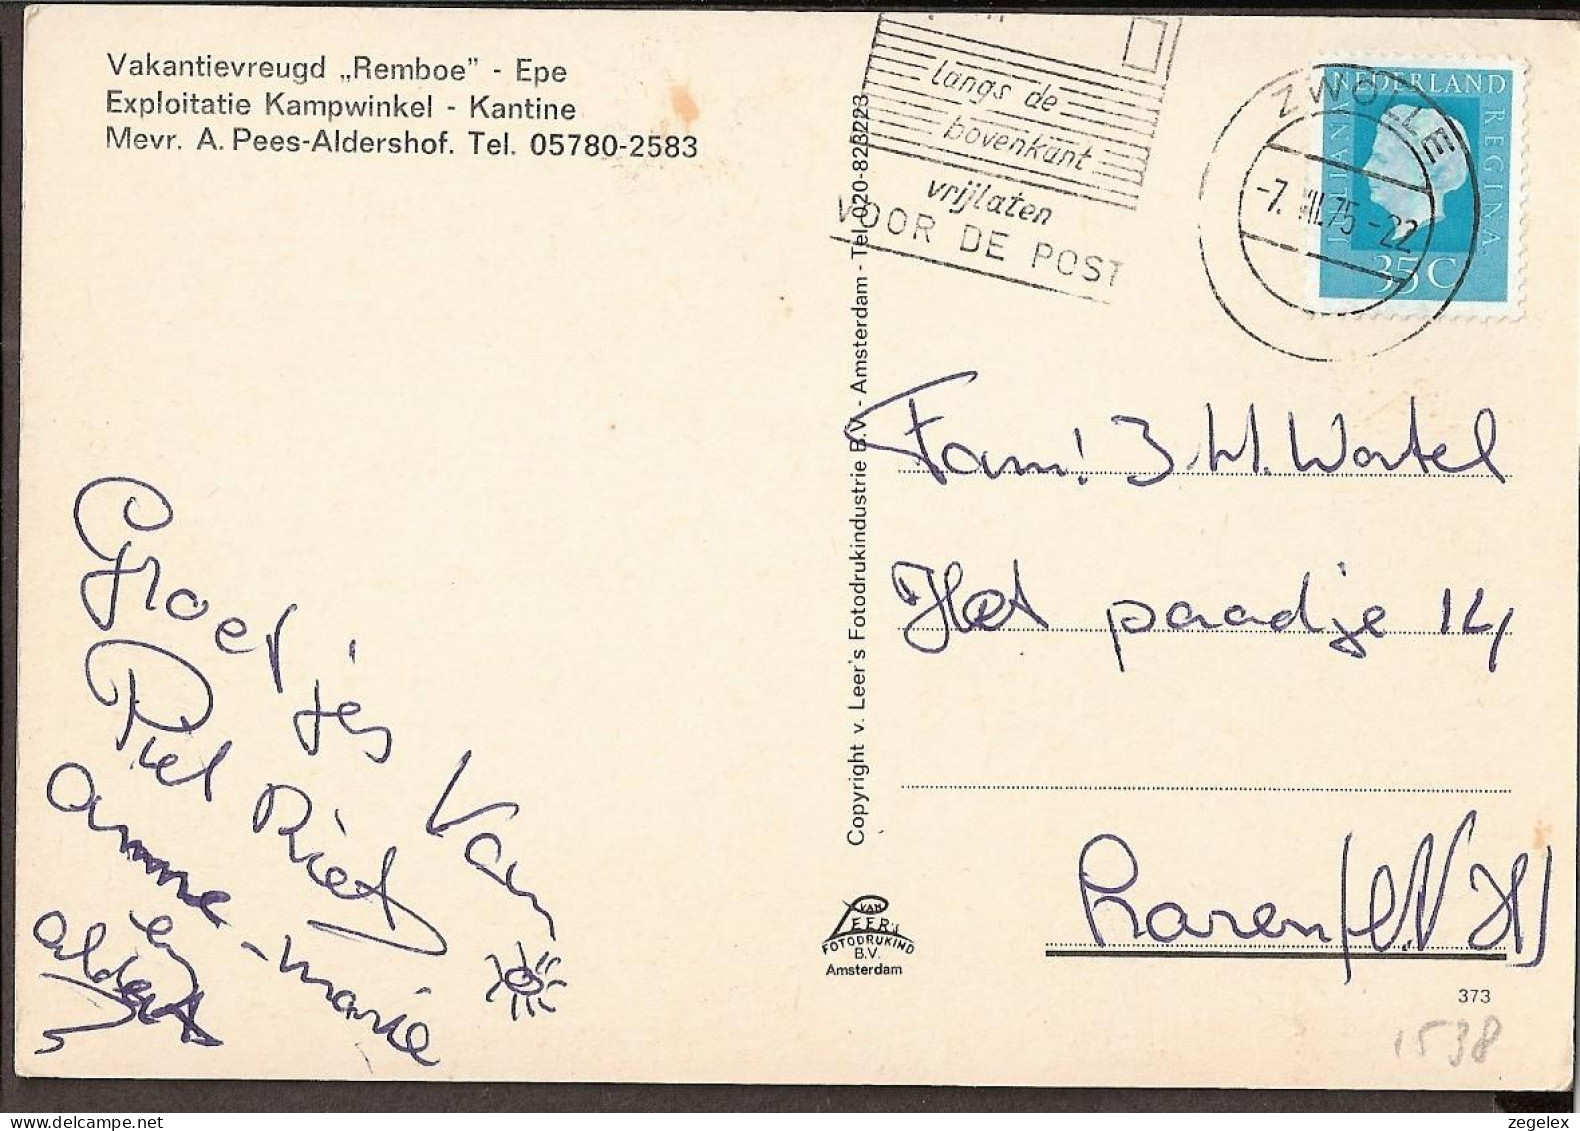 Vakantievreugd „Remboe” - Epe
Exploitatie Kampwinkel - Kantine
Mevr. A. Pees-Aldershof. Tel. 05780-2583
langs de
bovenkant
vrijlaten
VOOR DE POST
ZWOLLE
-7. VII.75-22
NEDERLAND
JULIANA
REGINA
35 C
Copyright v. Leer's Fotodrukindustrie B.V. - Amsterdam - Tel. 020-823223
Fam! J W. Wortel
Het paadje 14
Laren (N H)
Groetjes van
Piet Riet
anne-marie
en
aldert
VAN
LEER's
FOTODRUKIND
B.V.
Amsterdam
373
1538
zegelex